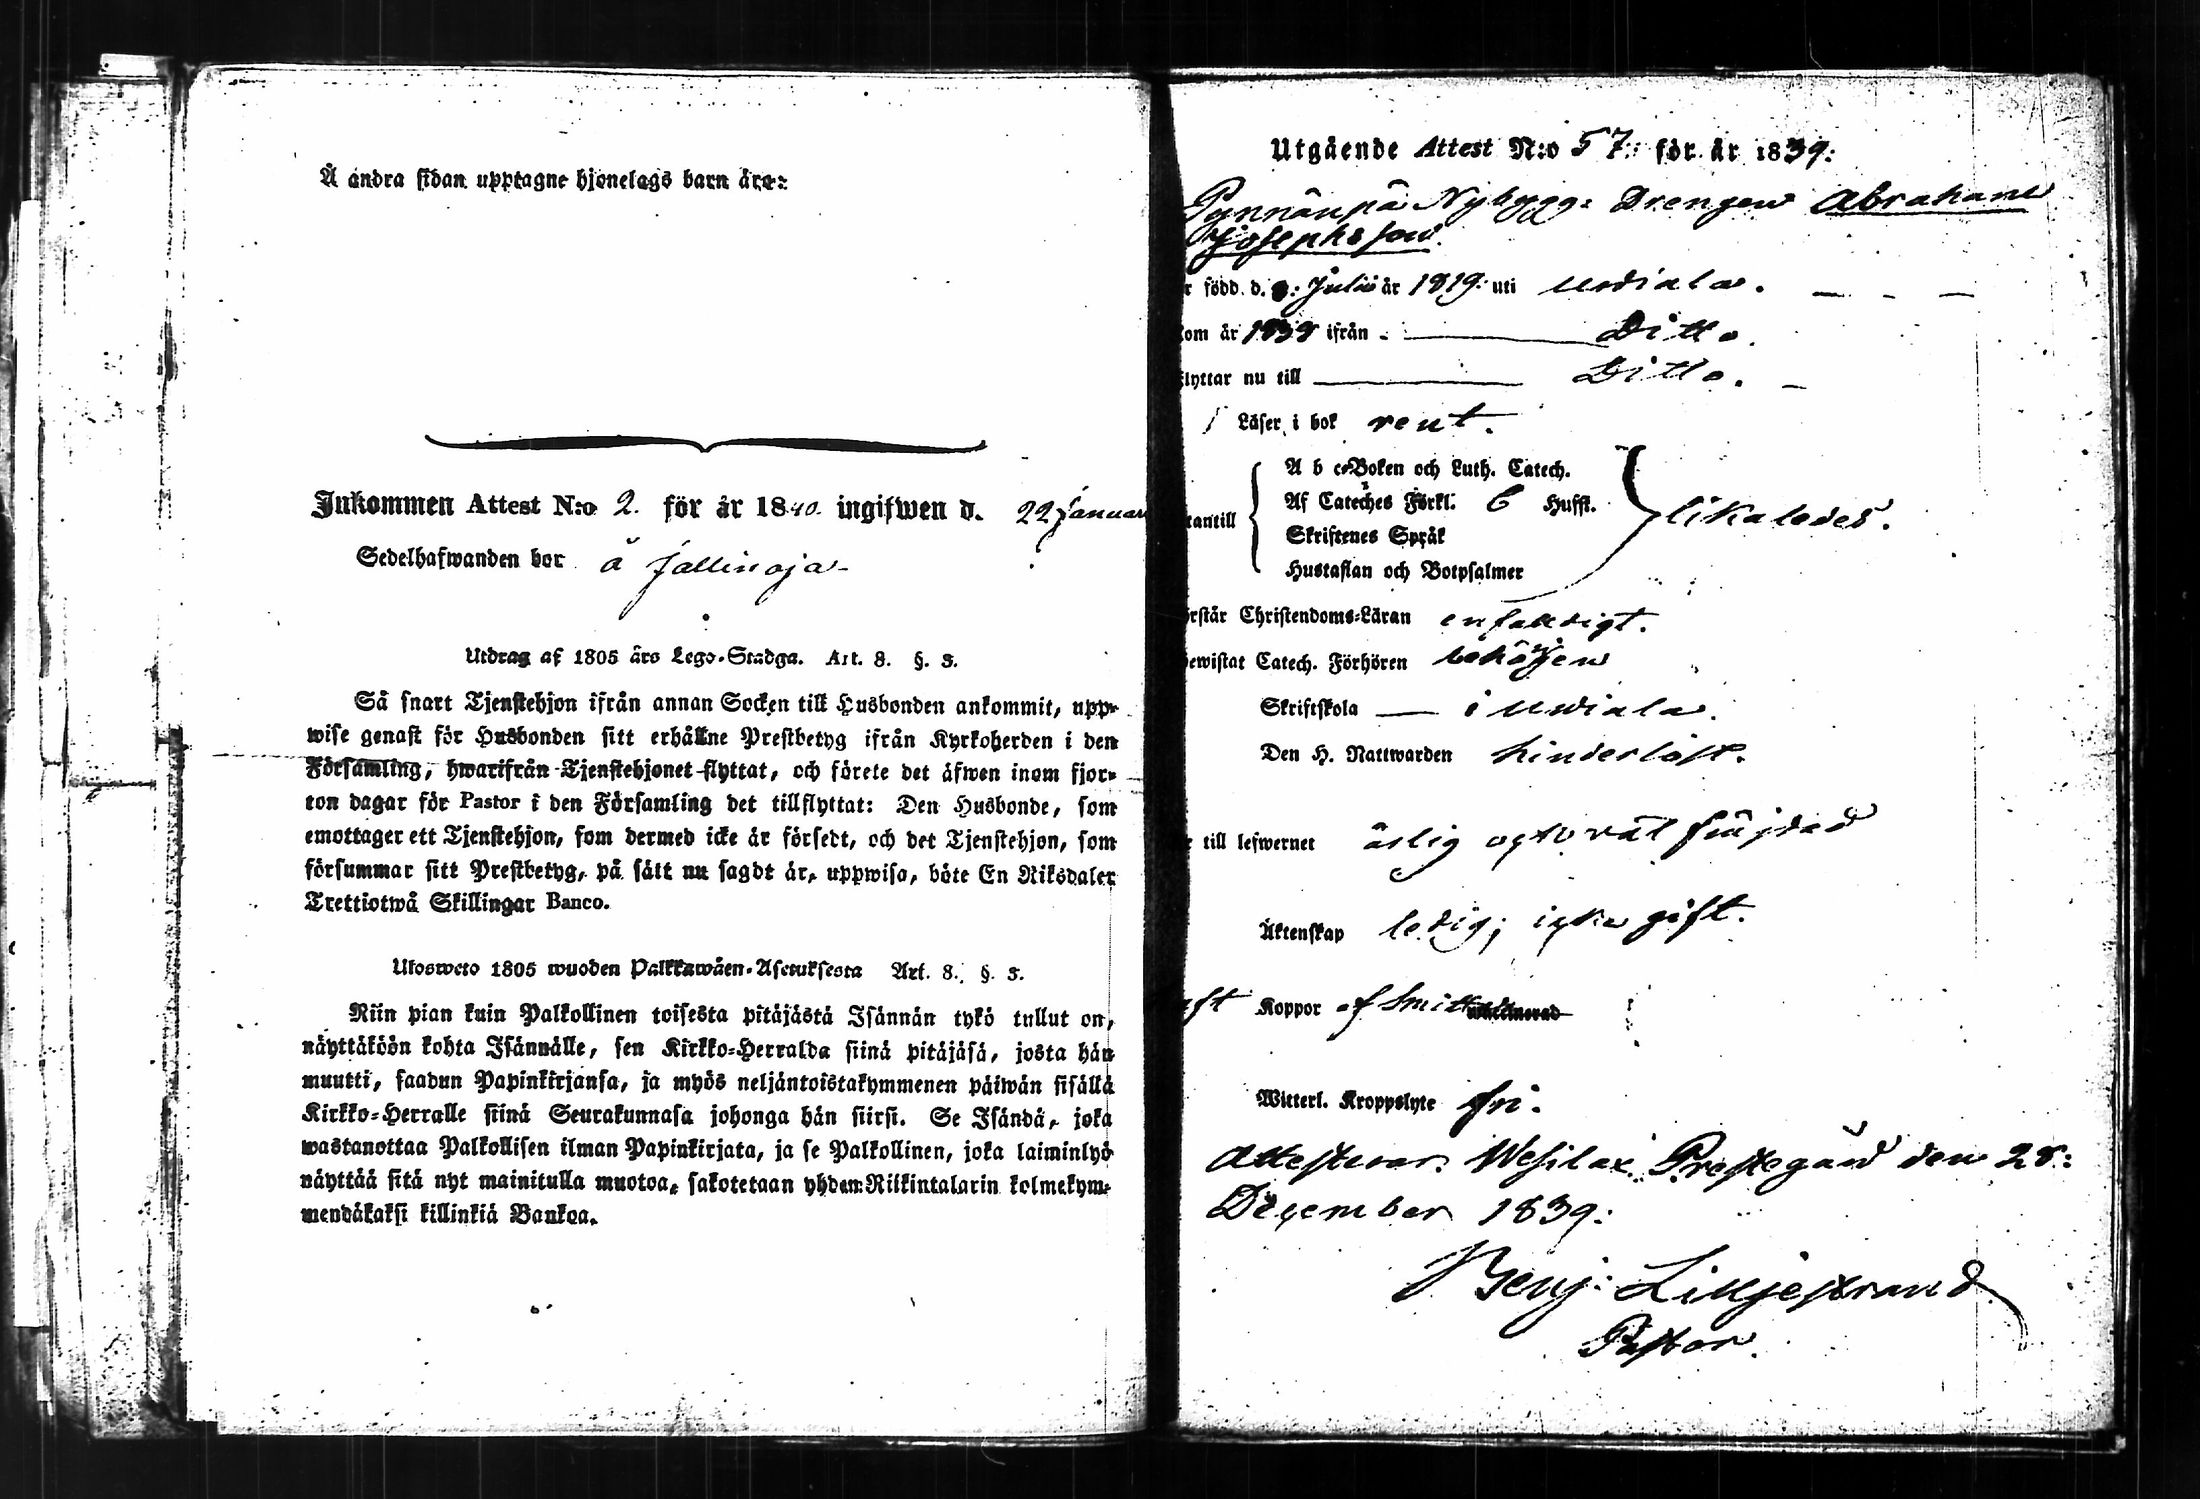 Å andra sidan upptagne hjonelags barn äro:
Inkommen Attest N:o 2. för år 1840. ingifwen d. 22 Januari
Sedelhafwanden bor å Jallinoja
Utdrag af 1805 års Lego-Stadga. Art. 8. §. 3.
Så snart Tjenstehjon ifrån annan Socken till Husbonden ankommit, upp-
wise genast för Husbonden sitt erhållne Prestbetyg ifrån Kyrkoherden i den
Församling, hwarifrån Tjenstehjonet flyttat, och förete det äfwen inom fjor-
ton dagar för Pastor i den Församling det tillflyttat: Den Husbonde, som
emottager ett Tjenstehjon, som dermed icke är försedt, och det Tjenstehjon, som
försummar sitt Prestbetyg, på sätt nu sagdt är, uppwisa, böte En Riksdaler
Trettiotwå Skillingar Banco.
Ulosweto 1805 wuoden Palkkawäen-Asetuksesta Art. 8. §. 3.
Niin pian kuin Palkollinen toisesta pitäjästä Isännän tykö tullut on,
näyttäköön kohta Isännälle, sen Kirkko-Herralda siinä pitäjäsä, josta hän
muutti, saadun Papinkirjansa, ja myös neljäntoistakymmenen päiwän sisällä
Kirkko-Herralle siinä Seurakunnasa johonga hän siirsi. Se Isändä, joka
wastanottaa Palkollisen ilman Papinkirjata, ja se Palkollinen, joka laiminlyö
näyttää sitä nyt mainitulla muotoa, sakotetaan yhden Riikintalarin kolmekym-
mendäkaksi killinkiä Bankoa.
Utgående Attest N:o 57: för år 1839:
Pynnänpä Nybygg: Drengen Abraham
Josephsson
r född d. Julii år 1819: uti Urdiala.
kom år 1838 ifrån Ditto.
flyttar nu till Ditto.
Läser i bok rent.
A b c-Boken och Luth. Catech.
Af Cateches Förkl. 6 Hufst.
utantill likaledes.
Skriftenes Språk
Hustaflan och Botpsalmer
örstår Christendoms-Läran enfaldigt.
bewistat Catech. Förhören behörigen
Skriftskola i Urdiala.
Den H. Nattwarden hinderlöst.
r till lefwernet ärlig och väl frejdad
Äktenskap ledig; icke gift.
aft Koppor af Smitta
Witterl. Kroppslyte fri.
Attesterar. Wesilax Prestegård den 28:
December 1839:
Benj: Liljestrand
Pastor.